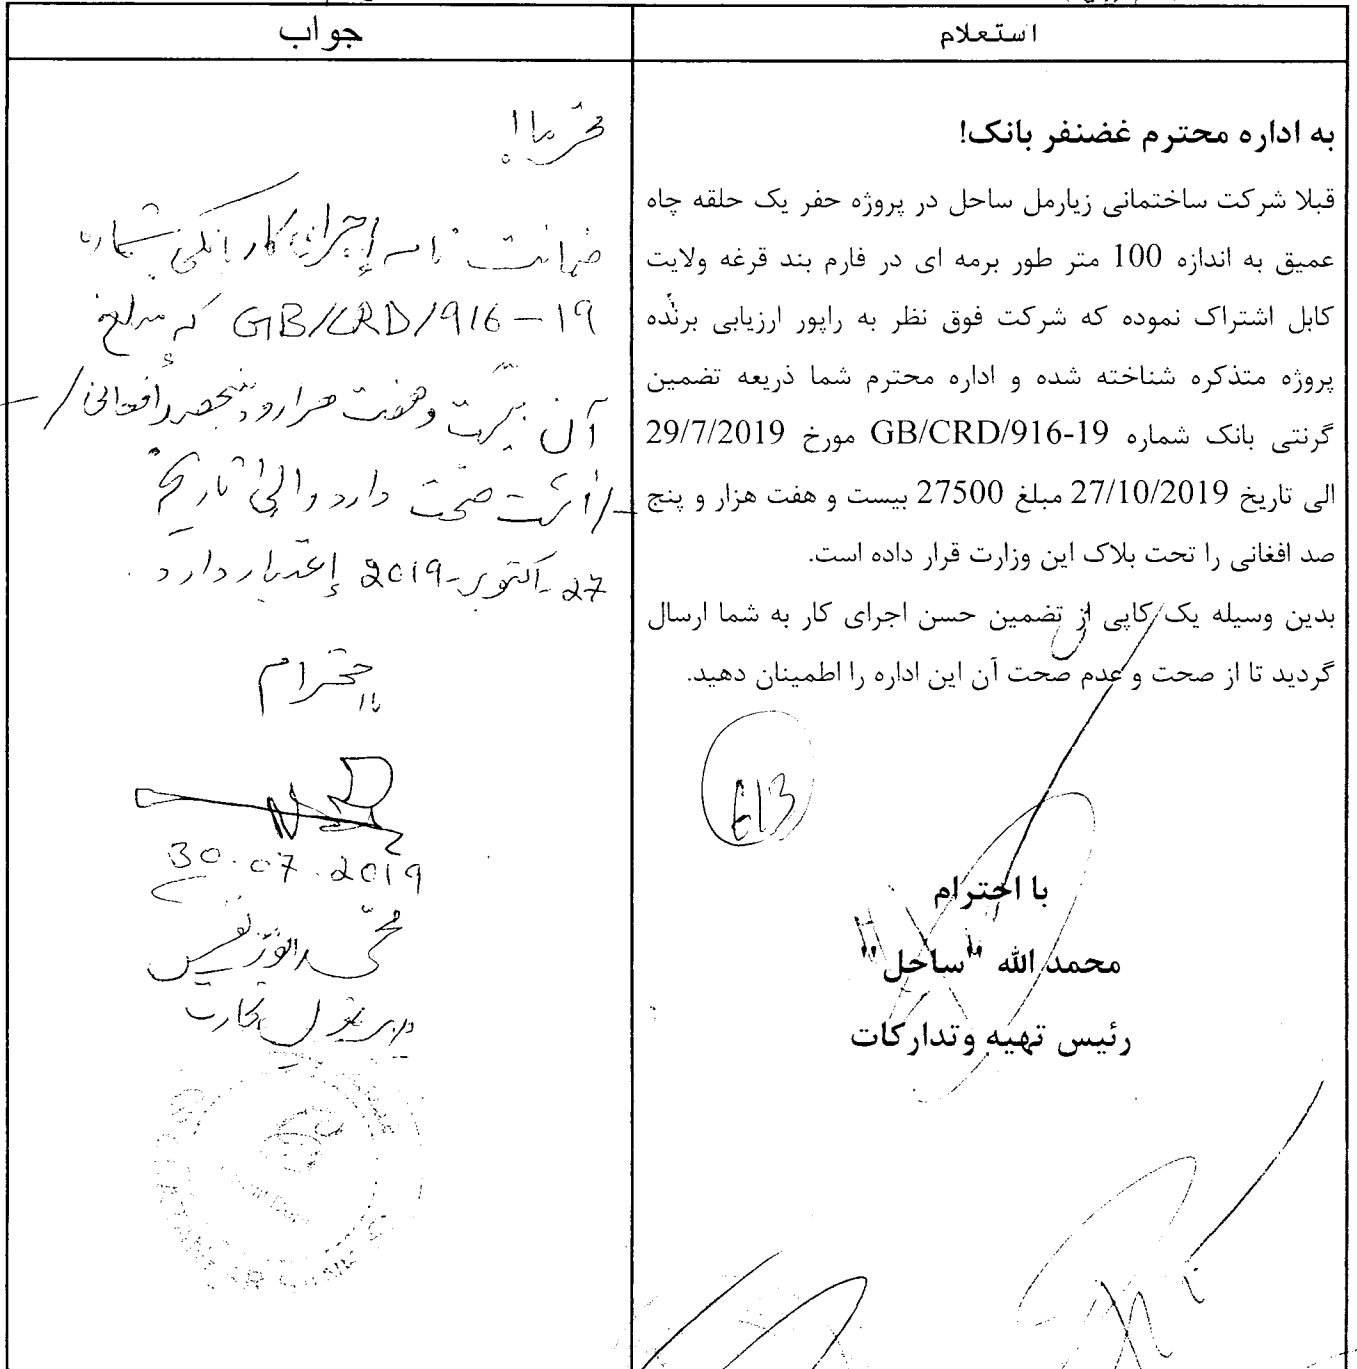 استعلام
به اداره محترم غضنفر بانک!
قبلا شرکت ساختمانی زیارمل ساحل در پروژه حفر یک حلقه چاه
عمیق به اندازه 100 متر طور برمه ای در فارم بند قرغه ولایت
کابل اشتراک نموده که شرکت فوق نظر به راپور ارزیابی برنده
پروژه متذکره شناخته شده و اداره محترم شما ذریعه تضمین
گرنتی بانک شماره GB/CRD/916-19 مورخ 29/7/2019
الی تاریخ 27/10/2019 مبلغ 27500 بیست و هفت هزار و پنج
صد افغانی را تحت بلاک این وزارت قرار داده است.
بدین وسیله یک کاپی از تضمین حسن اجرای کار به شما ارسال
گردید تا از صحت و عدم صحت آن این اداره را اطمینان دهید.
GB
با احترام
محمد الله "ساحل"
رئیس تهیه وتدارکات
جواب
محترما!
ضمانت نامه إجرای کار بانکی شماره
GB/CRD/916-19 که مبلغ
آن بیست و هفت هزار و پنجصد أفغانی/-
است صحت دارد و الی تاریخ
27-اکتوبر-2019 إعتبار دارد.
با احترام
30.07.2019
محمد
GHAZANFAR BANK